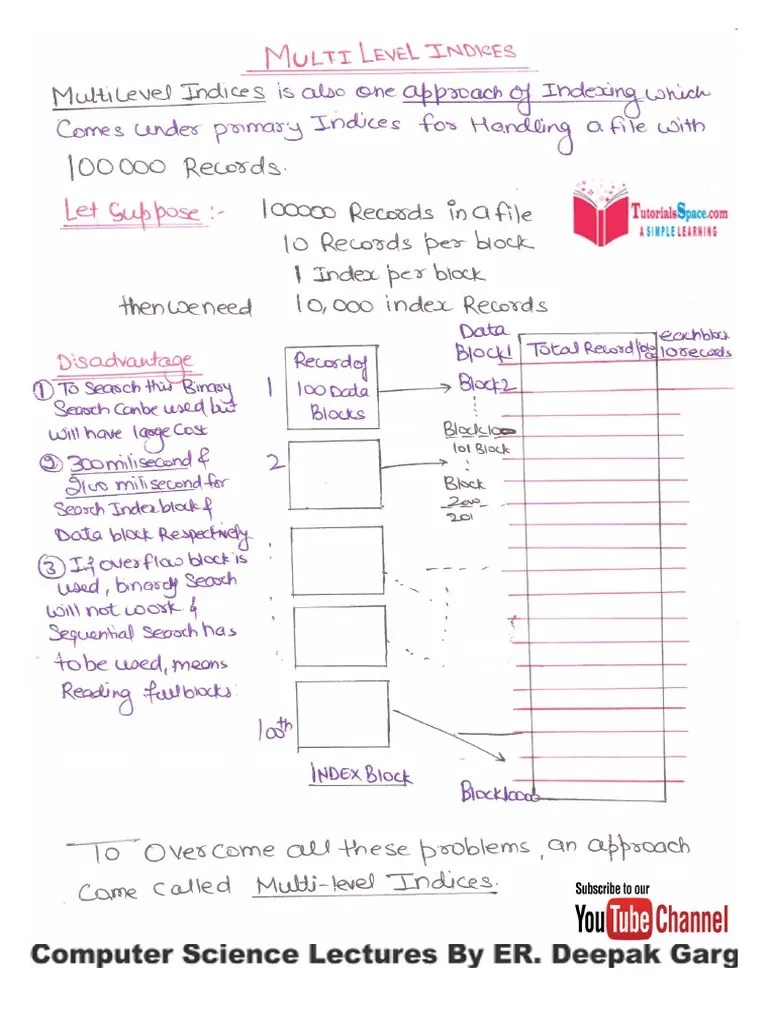 MULTI LEVEL INDICES
Multilevel Indices is also one approach of Indexing which
Comes under primary Indices for Handling a file with
100000 Records.
Let Suppose :- 100000 Records in a file
10 Records per block
1 Index per block
then we need 10,000 index Records
TutorialsSpace.com
A SIMPLE LEARNING
Disadvantage
① To Search this Binary
Search Can be used but
will have large Cost
② 300 milisecond &
2100 milisecond for
Search Index block &
Data block Respectively
③ If overflow block is
used, binary Search
will not work &
Sequential Search has
to be used, means
Reading full blocks.
1
Record of
100 Data
Blocks
2
100th
INDEX Block
Data
Block 1
Block 2
Block 100
101 Block
Block
200
201
Block 10000
Total Record
each block
10 records
To Overcome all these problems, an approach
Came called Multi-level Indices.
Subscribe to our
YouTube Channel
Computer Science Lectures By ER. Deepak Garg